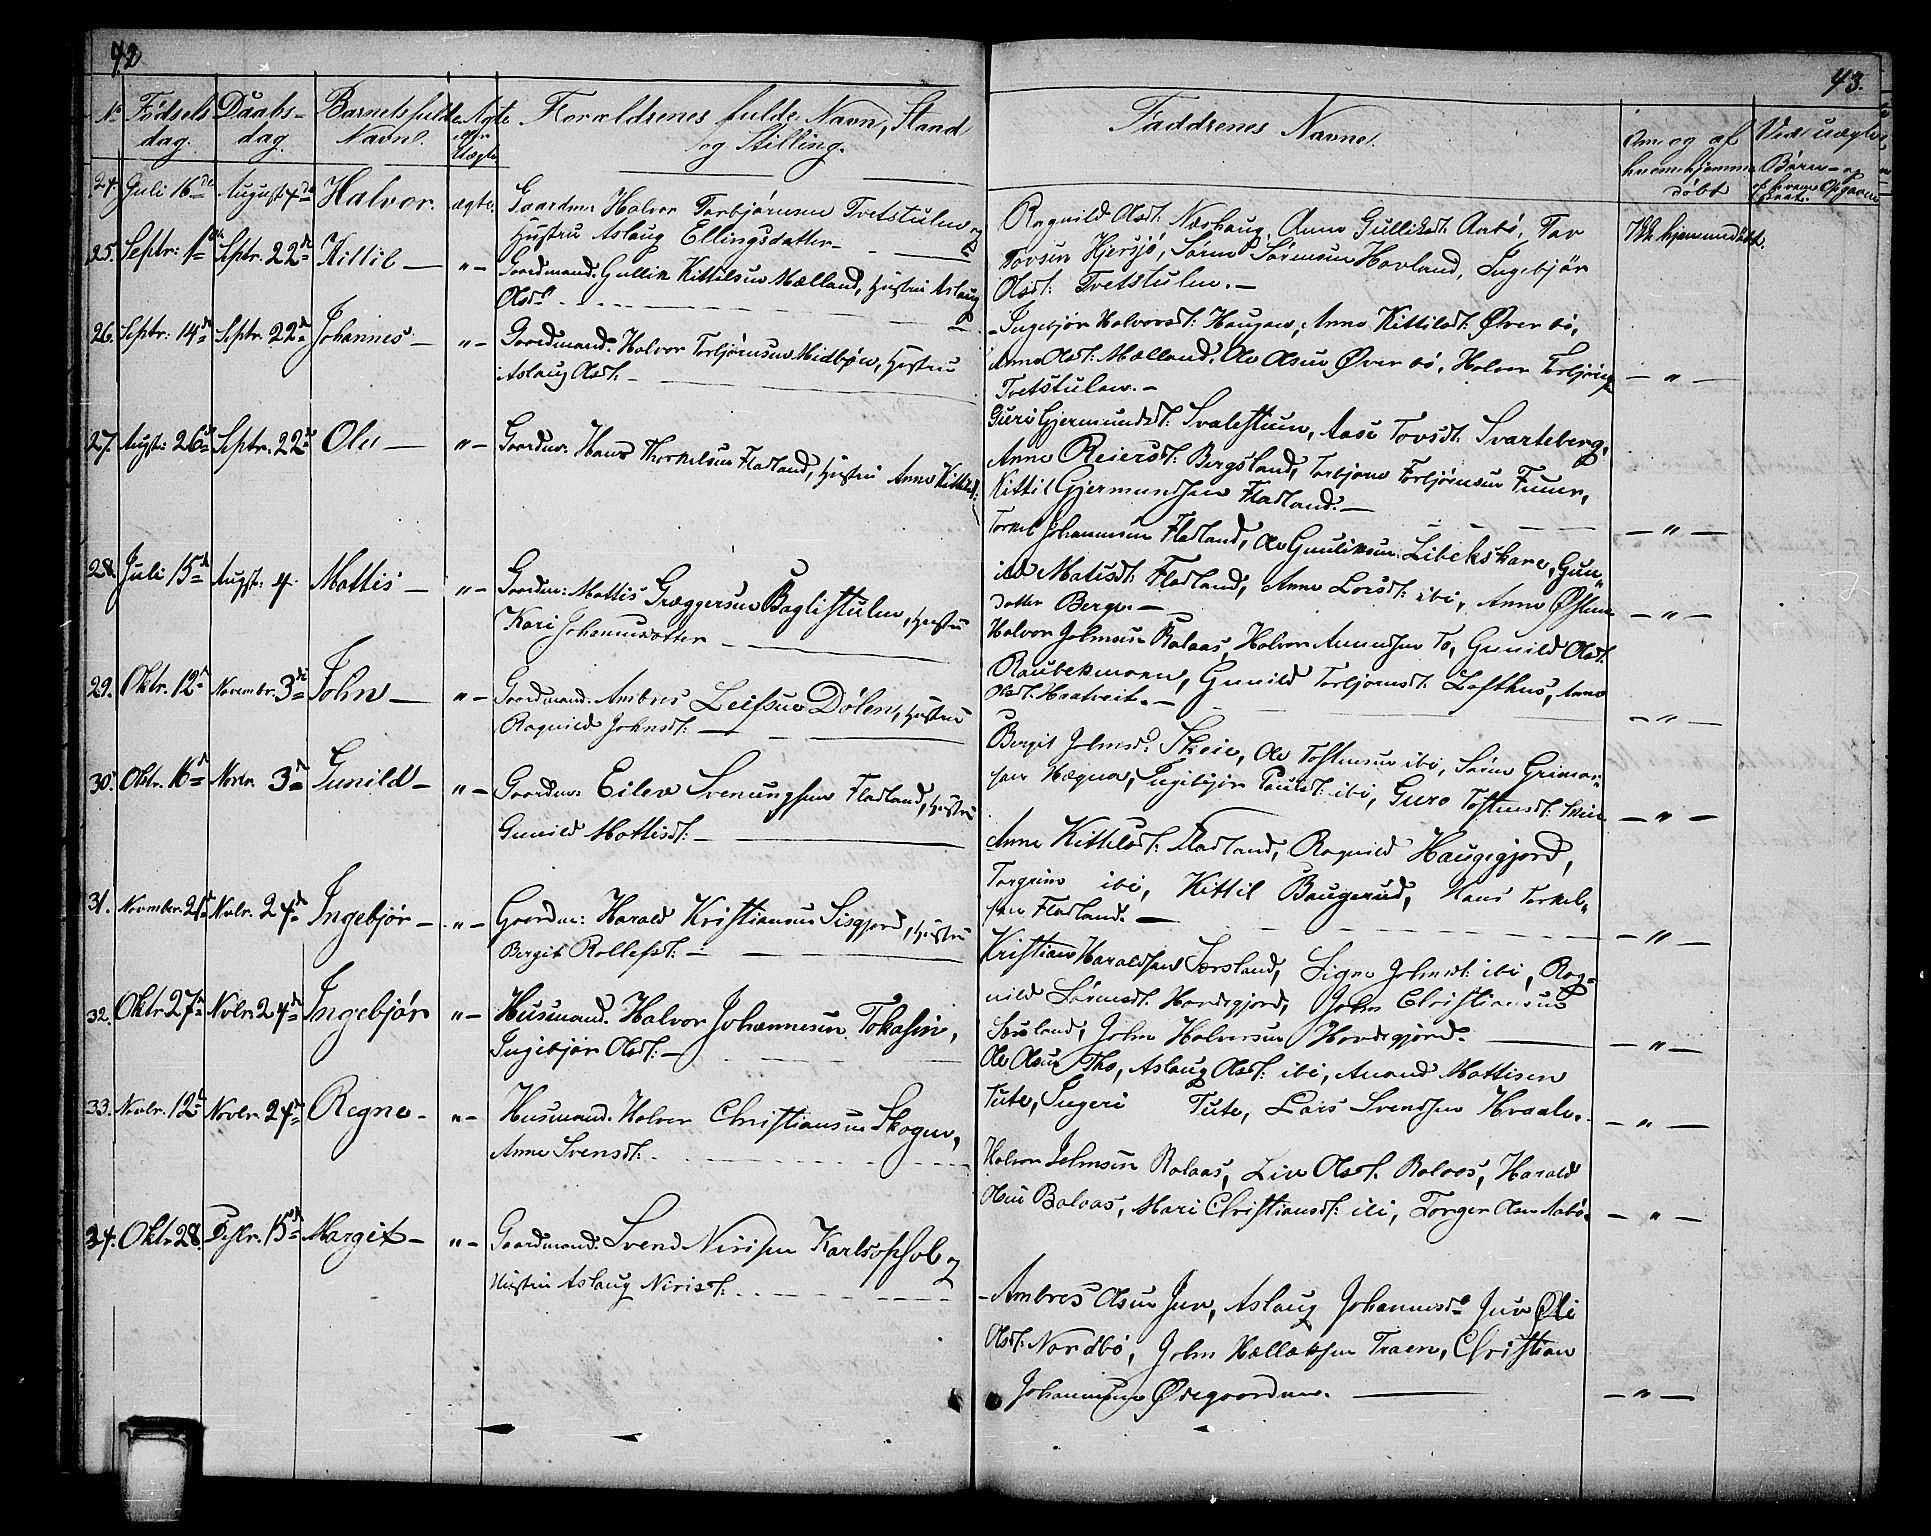 42
No Fødsels Daabs- Barnets fulde Ægte Forældrenes fulde Navn, Stand
dag. dag. Navn. eller og Stilling.
Uægte
24. Juli 16de August 4de Halvor. ægte. Gaardm: Halvor Torbjørnsen Tvetstulen og
Hustru Aslaug Ellingsdatter
25. Septr: 1ste Septr. 22de Kittil — "- Gaardmand. Gullik Kittilsen Mælland, Hustru Aslaug
Olsdt.
26. Septr. 14de Septr. 22de Johannes — "- Gaardmand. Halvor Torbjørnsen Midbøen, Hustru
Aslaug Olsdt. —
27. Augst: 26de Septr. 22de Ole — "- Gaardm: Hans Thorkelsen Fladland, Hustru Anne Kittilsdt:
28. Juli 15de Augst: 4. Mattis — "- Gaardm: Mattis Græggersen Baglistulen, Hustru
Kari Johannesdatter
29. Oktr. 12te Novembr. 3die John — "- Gaardmand. Ambros Leifsen Dølen, Hustru
Ragnild Johnsdt: —
30. Oktr. 16de Novbr. 3die Gunild — "- Gaardm: Eilev Svenungsen Fladland, Hustru
Gunild Mattisdt. —
31. Novmber. 21de Novbr. 24de Ingebjør — "- Gaardm: Harald Kristiansen Sisgjord, Hustru
Bergit Rollefsdt: —
32. Oktr. 27de Novbr. 24de Ingebjør "- Husmand. Halvor Johannesen Tokasin,
Ingebjør Olsdt: —
33. Novbr. 12te Novbr. 24de Regne - "- Husmand. Halvor Christiansen Skogen,
Anne Svensdt.
34. Oktr. 28. Debr. 15de Margit — "- Gaardmand. Svend Nirisen Karlsopsol og
Hustru Aslaug Nirisdt.
43.
Faddrenes Navne. Om og af Ved uægte
hvem hjemme Børn - og
døbt
Ragnild Olsdt. Nærhaug, Anne Gulliksdt. Aabø, Tov
Tovsen Hjersjø, Søren Sørensen Havland, Ingebjør Ikk hjemmedøbt.
Olsdt: Tvetstulen. —
Ingebjør Halvorsdt: Haugen, Anne Kittilsdt. Øverbø,
Anne Olsdt: Mælland. Ole Olsen Øverbø, Halvor Torbjørns.
Tvetstulen. — — " —
Guri Gjermundsdt. Svalestuen, Aase Tovsdt. Svarteberg,
Anne Reiersdt: Bergsland, Torbjørn Torbjørnsen
Kittil Gjermundsen Fladland. — — " —
Torkel Johannesen Fladland, Ole Gunliksen Libekskare, Gun-
ild Matisdt: Fladland, Anne Loisdt: ibi, Anne Østens-
datter Berge. — — " —
Halvor Johnsen Rolaas, Halvor Anundsen To, Gunild Olsdt.
Raubekmoen, Gunild Torbjørnsdt. Lofthus, Anne
Olsdt. Haatveit. — — " —
Bergit Johnsdt. Skeie, Ole Tostensen ibi, Søren Grimar-
sen Hægna, Ingebjør Paulsdt. ibi, Guro Tostensdt. Skeie — " —
Anne Kittilsdt. Fladland, Ragnild Haugegjord,
Torgrim ibi, Kittil Baugerud, Hans Torkel-
sen Fladland. — — " —
Kristian Haraldsen Særsland, Signe Johnsdt. ibi, Rag-
nild Sørensdt. Hovdegjord, John Christiansen
Særsland, John Halvorsen Hovdegjord. — — " —
Ole Olsen Tho, Aslaug Olsdt: ibi, Anund Mattisen
Tute, Ingeri Tute, Lars Svendsen Hvaale. — " —
Halvor Johnsen Rolaas, Liv Olsdt. Rolaas, Harald
Olsen Bolaas, Mari Christiansdt. ibi, Torger Olsen Aabø. — " —
Ambros Olsen Juv, Aslaug Johannesdt. Juv
Olsdt. Nordbø, John Hællæksen Traen, Christian
Johannesen Ødegaarden. — — " —